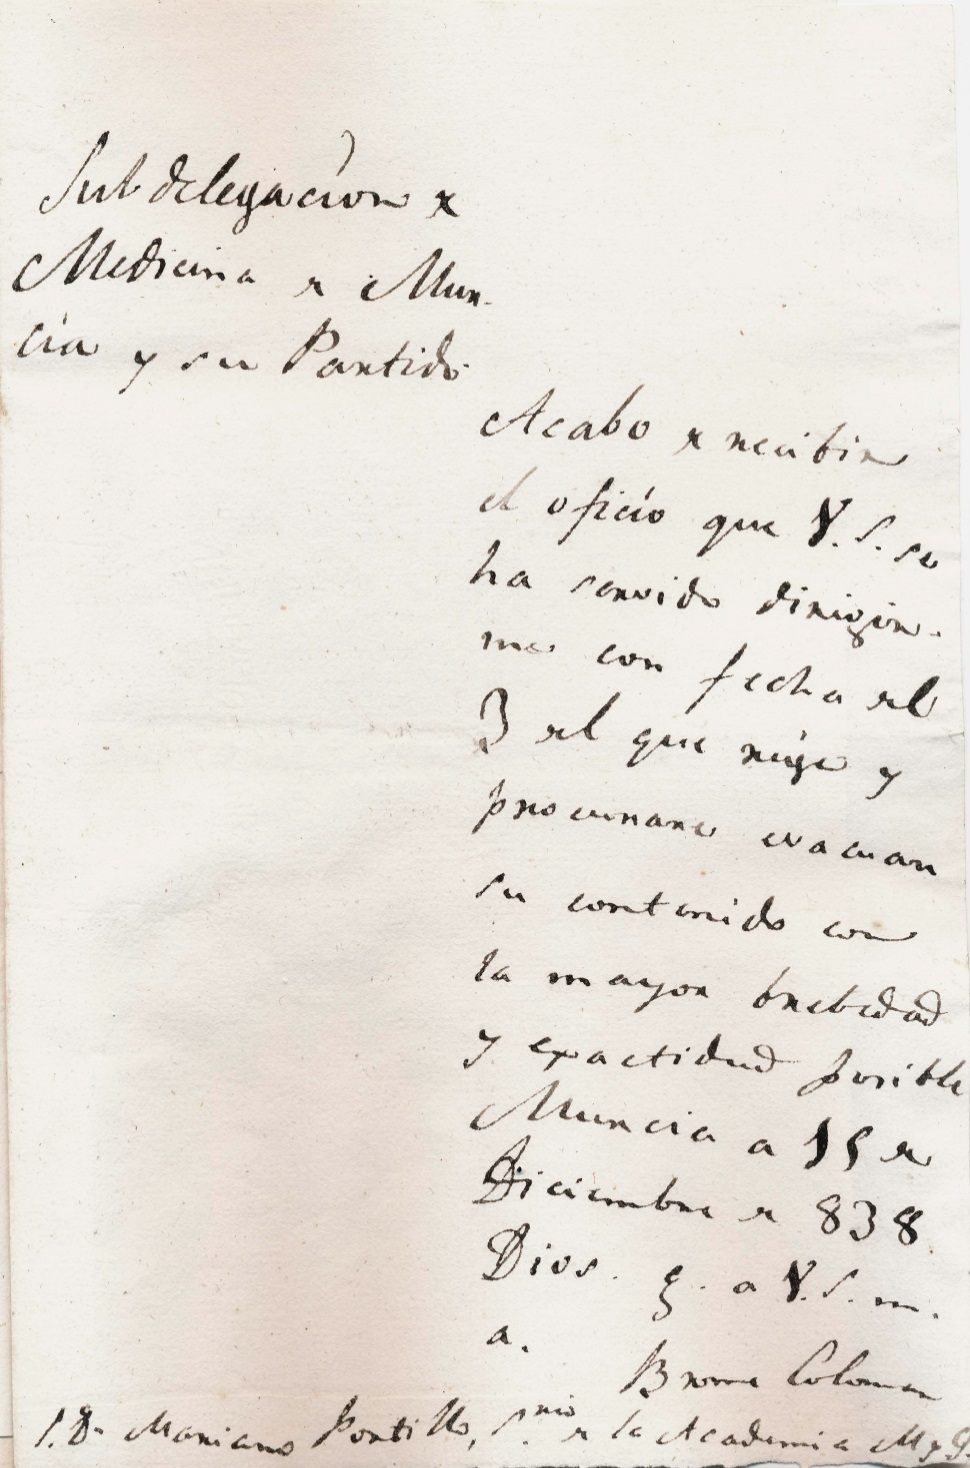 Subdelegacion de
Medicina de Mur-
cia y su Partido
Acabo de recibir
el oficio que V.S. se
ha servido dirigir-
me con fecha del
3 del que rige y
procurare evacuar
su contenido con
la mayor brebedad
y exactidud posible
Murcia a 15 de
Diciembre de 838
Dios. g. a V.S. m.
a.
Coloman
S. Dn Mariano Portillo, S.rio de la Academia M y